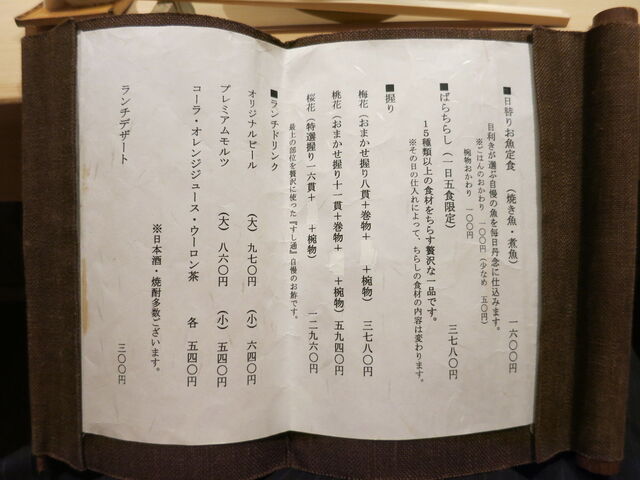 ■日替りお魚定食 (焼き魚・煮魚) 一六〇〇円
目利きが選ぶ自慢の魚を毎日丹念に仕込みます。
※ごはんのおかわり 一〇〇円(少なめ 五〇円)
椀物おかわり 一〇〇円
■ばらちらし(一日五食限定) 三七八〇円
15種類以上の食材をちらす贅沢な一品です。
※その日の仕入れによって、ちらしの食材の内容は変わります。
■握り
梅花(おまかせ握り八貫+巻物+ +椀物) 三七八〇円
桃花(おまかせ握り十一貫+巻物+ +椀物) 五九四〇円
桜花(特選握り一六貫+ +椀物) 一二九六〇円
最上の部位を贅沢に使った『すし通』自慢のお鮓です。
■ランチドリンク
オリジナルビール (大) 九七〇円 (小) 六四〇円
プレミアムモルツ (大) 八六〇円 (小) 五四〇円
コーラ・オレンジジュース・ウーロン茶 各 五四〇円
※日本酒・焼酎多数ございます。
ランチデザート 三〇〇円